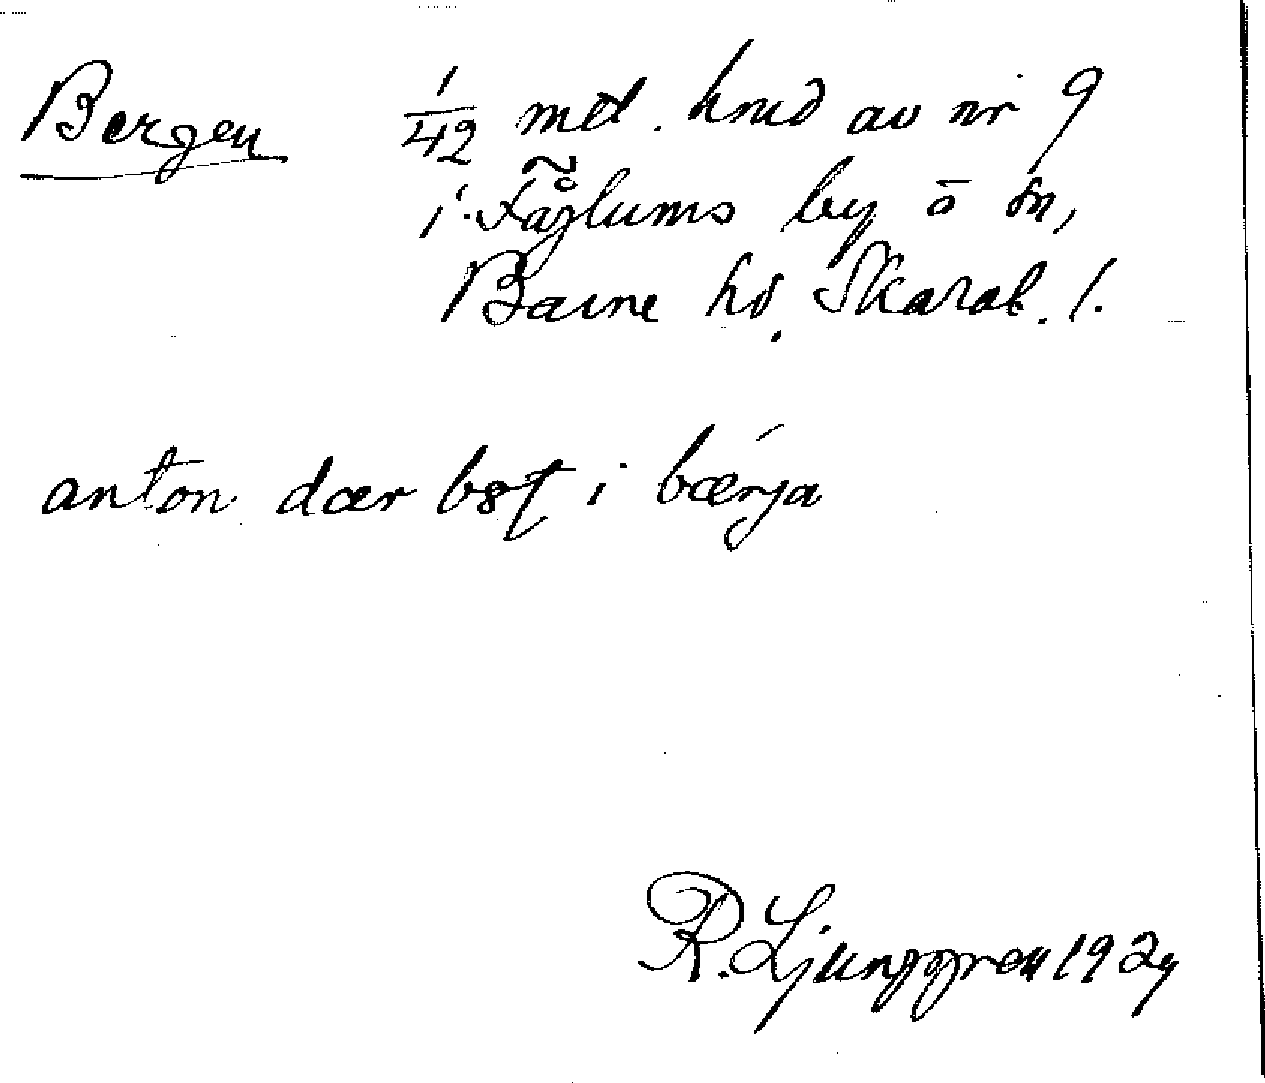 Bergen 1/42 mtl. hmd av nr 9
i Fåglums by o sn,
Barne hd. Skarab. l.
anton dær bor i bærja
R. Ljunggren 1924